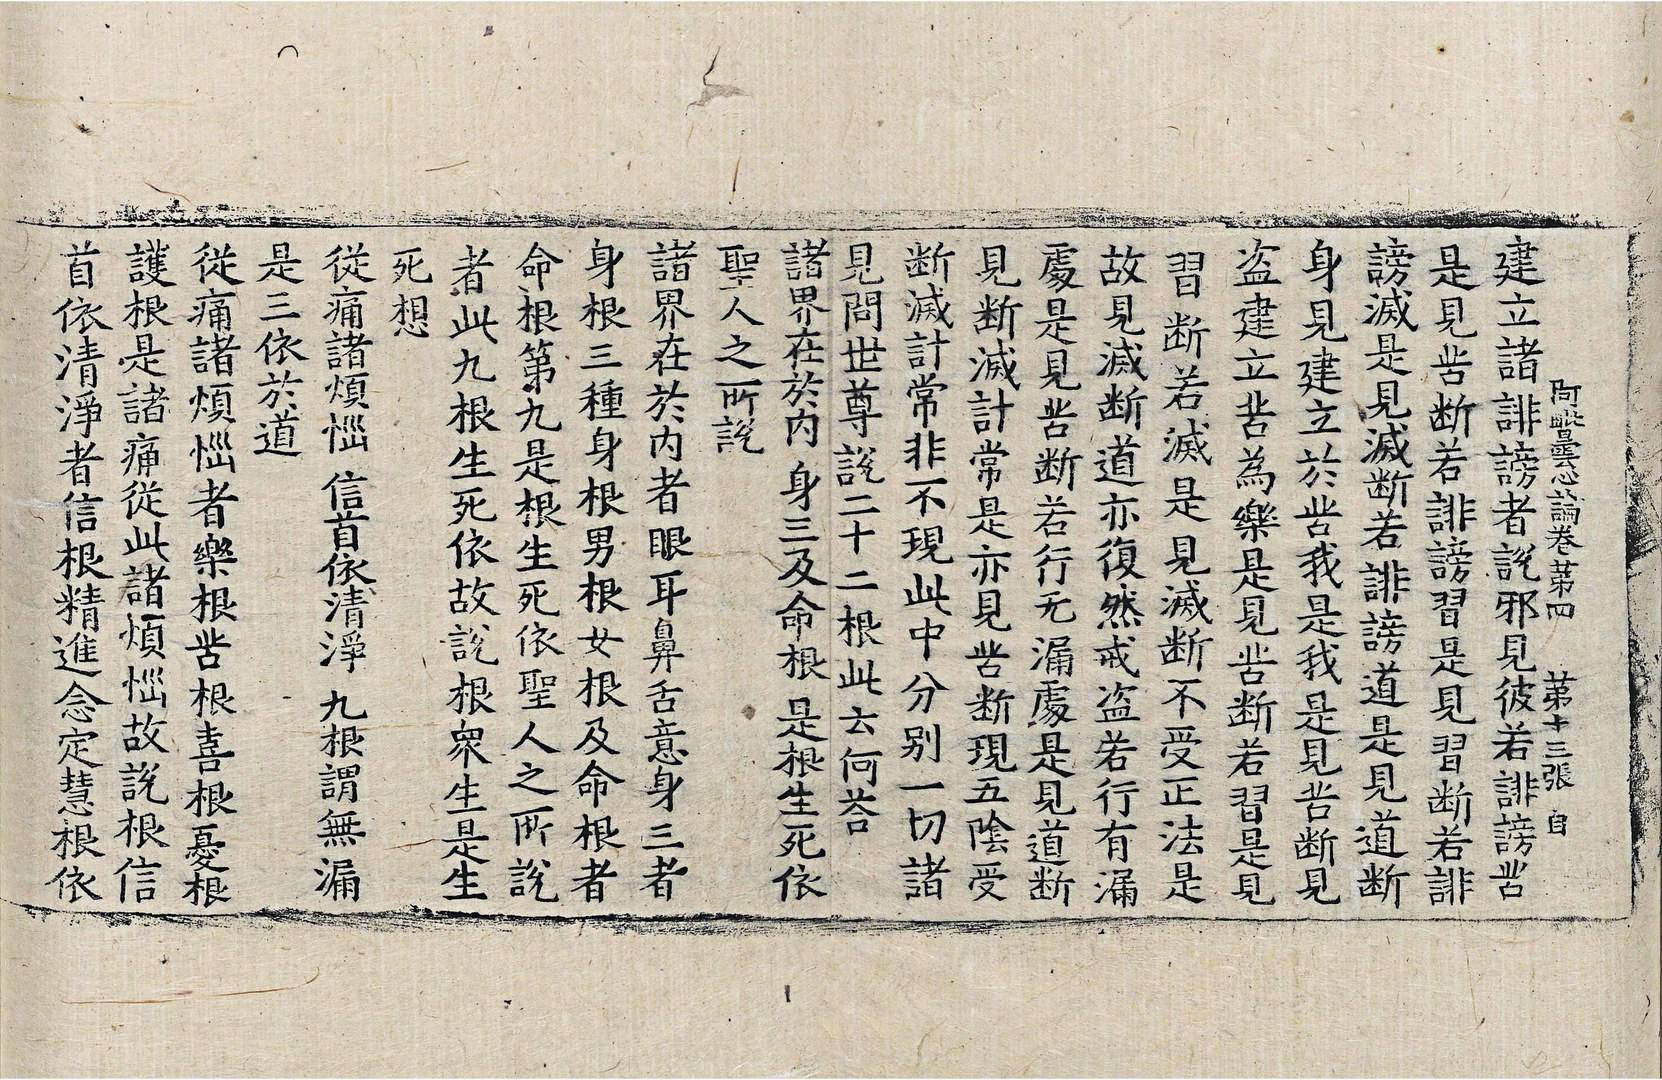 阿毗曇心論卷苐四 苐十三張 自
建立諸誹謗者說邪見彼若誹謗苦
是見苦断若誹謗習是見習断若誹
謗滅是見滅断若誹謗道是見道断
身見建立於苦我是我是見苦断見
盗建立苦為樂是見苦断若習是見
習断若滅是見滅断不受正法是
故見滅断道亦復然戒盗若行有漏
處是見苦断若行无漏處是見道断
見断滅計常是亦見苦断現五陰受
断滅計常非不現此中分别一切諸
見問世尊說二十二根此云何荅
諸界在於内 身三及命根 是根生死依
聖人之所說
諸界在於内者眼耳鼻舌意身三者
身根三種身根男根女根及命根者
命根第九是根生死依聖人之所說
者此九根生死依故說根衆生是生
死想
從痛諸煩惱 信首依清淨 九根謂無漏
是三依於道
從痛諸煩惱者樂根苦根喜根憂根
護根是諸痛從此諸煩惱故說根信
首依清淨者信根精進念定慧根依